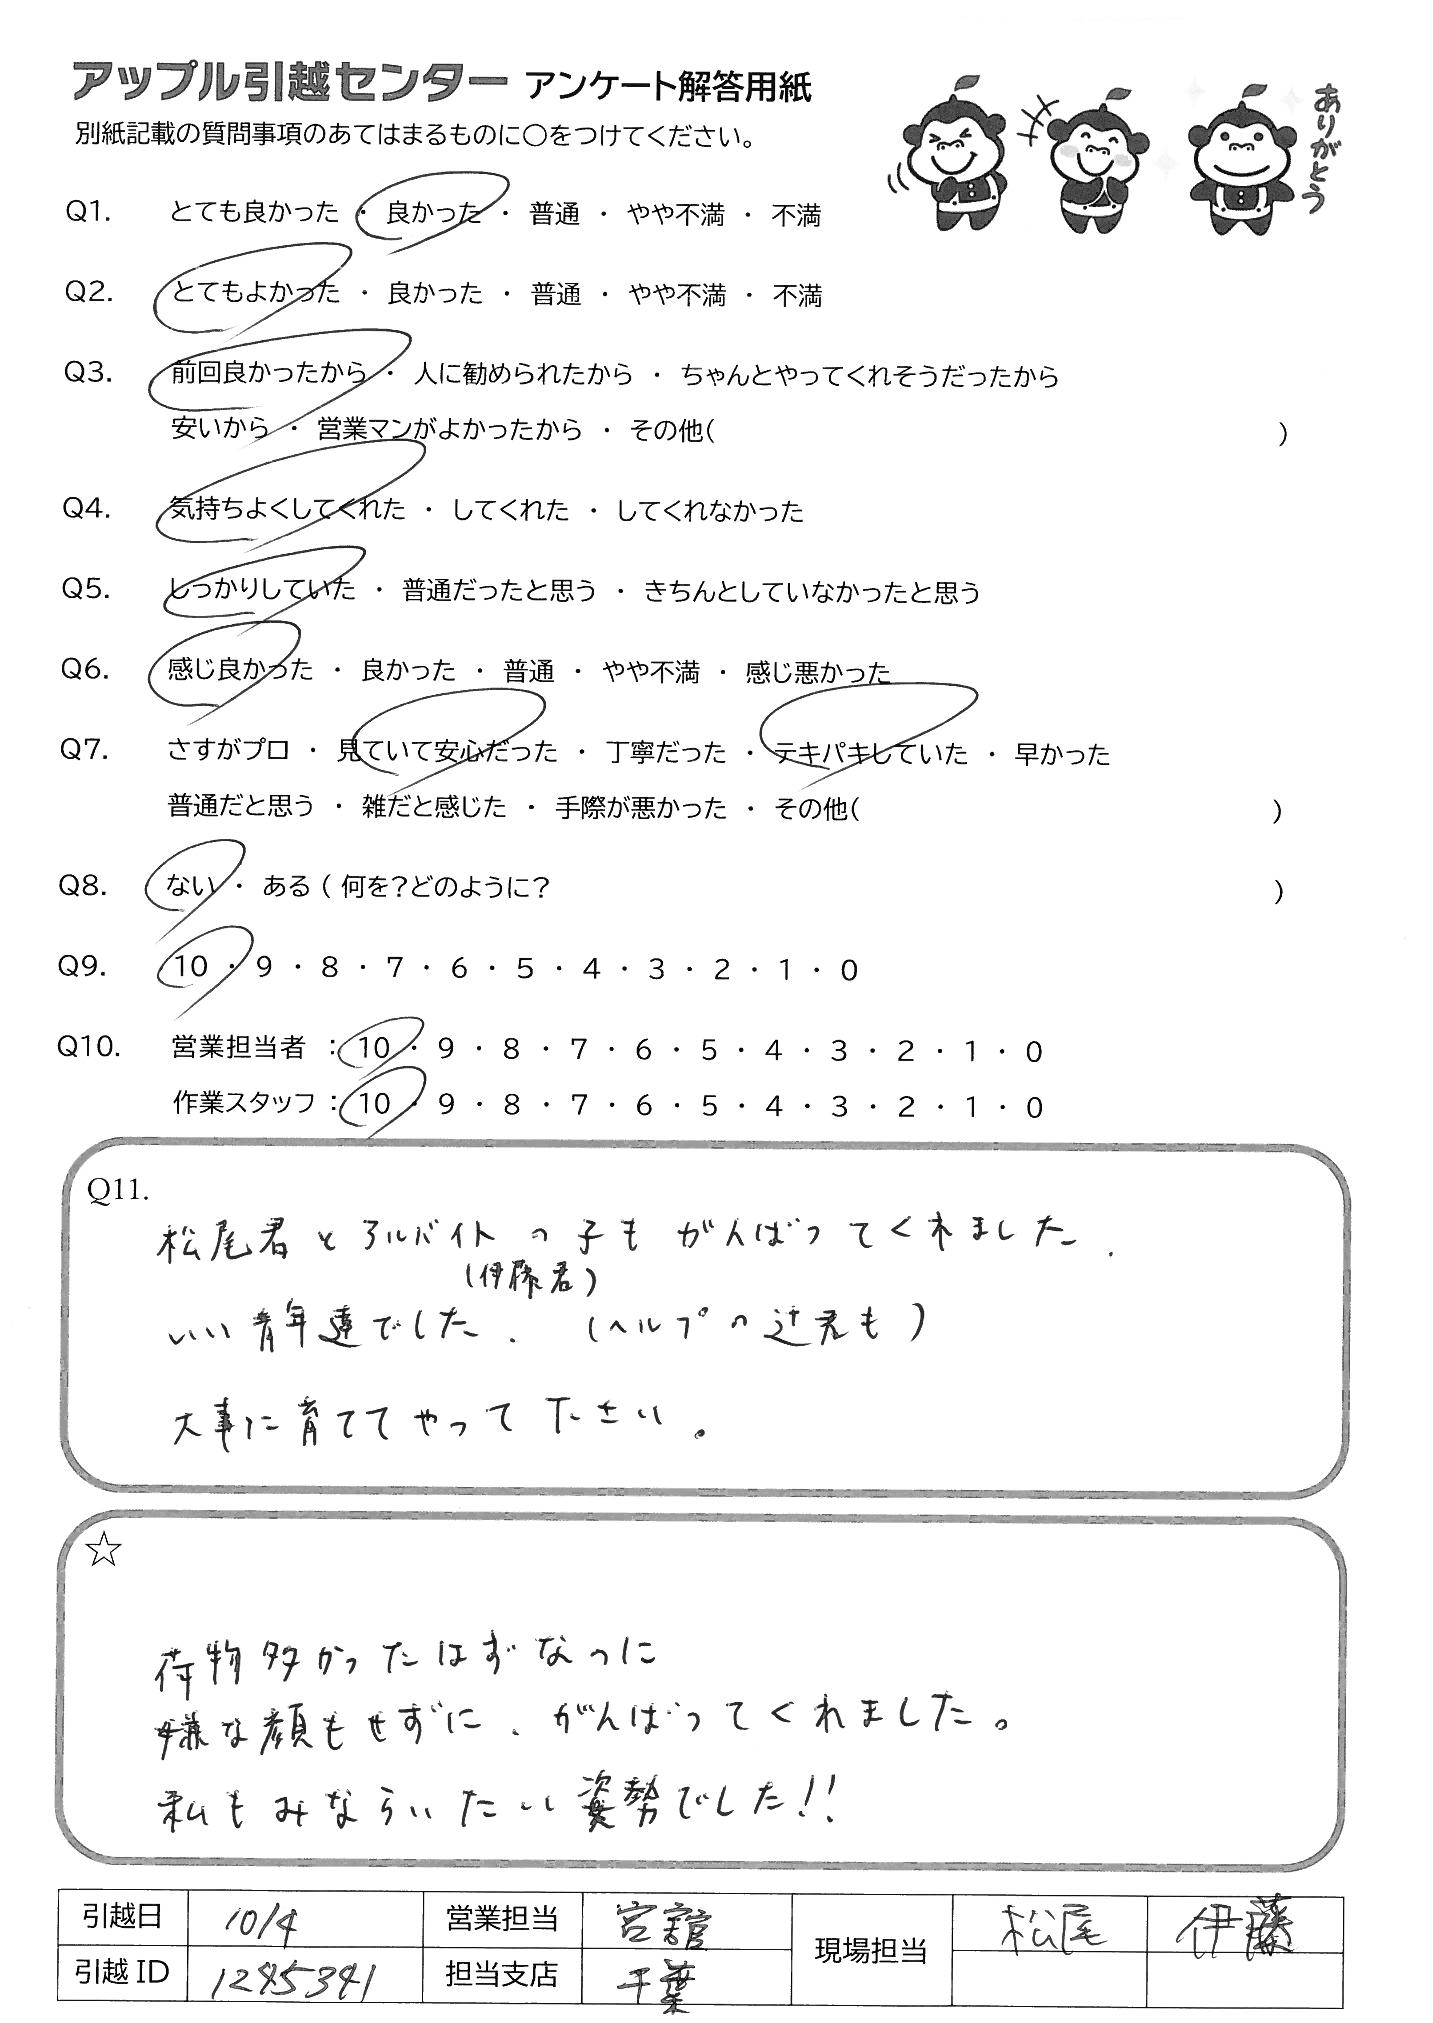 アップル引越センター アンケート解答用紙
別紙記載の質問事項のあてはまるものに○をつけてください。
ありがとう
Q1. とても良かった ・ 良かった ・ 普通 ・ やや不満 ・ 不満
Q2. とてもよかった ・ 良かった ・ 普通 ・ やや不満 ・ 不満
Q3. 前回良かったから ・ 人に勧められたから ・ ちゃんとやってくれそうだったから
安いから ・ 営業マンがよかったから ・ その他( )
Q4. 気持ちよくしてくれた ・ してくれた ・ してくれなかった
Q5. しっかりしていた ・ 普通だったと思う ・ きちんとしていなかったと思う
Q6. 感じ良かった ・ 良かった ・ 普通 ・ やや不満 ・ 感じ悪かった
Q7. さすがプロ ・ 見ていて安心だった ・ 丁寧だった ・ テキパキしていた ・ 早かった
普通だと思う ・ 雑だと感じた ・ 手際が悪かった ・ その他( )
Q8. ない ・ ある ( 何を?どのように? )
Q9. 10 ・ 9 ・ 8 ・ 7 ・ 6 ・ 5 ・ 4 ・ 3 ・ 2 ・ 1 ・ 0
Q10. 営業担当者 : 10 ・ 9 ・ 8 ・ 7 ・ 6 ・ 5 ・ 4 ・ 3 ・ 2 ・ 1 ・ 0
作業スタッフ : 10 ・ 9 ・ 8 ・ 7 ・ 6 ・ 5 ・ 4 ・ 3 ・ 2 ・ 1 ・ 0
Q11.
松尾君とアルバイトの子もがんばってくれました.
(伊藤君)
いい青年達でした. (ヘルプの辻君も)
大事に育ててやって下さい。
☆
荷物多かったはずなのに
嫌な顔もせずに、がんばってくれました。
私もみならいたい姿勢でした!!
引越日 10/4 営業担当 宮舘 現場担当 松尾 伊藤
引越ID 1245341 担当支店 千葉